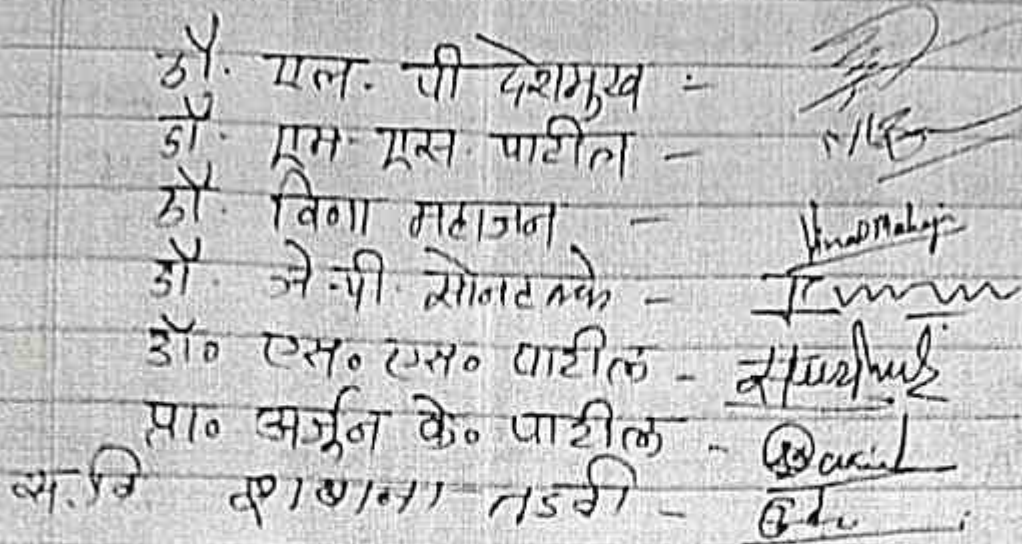 डॉ. एल. पी देशमुख :-
डॉ. एम. एस. पाटील -
डॉ. विणा महाजन - Vina Mahajan
डॉ. जे. पी. सोनटक्के -
डॉ० एस० एस० पाटील -
प्रा० अर्जुन के० पाटील -
स. वि शबाना तडवी -